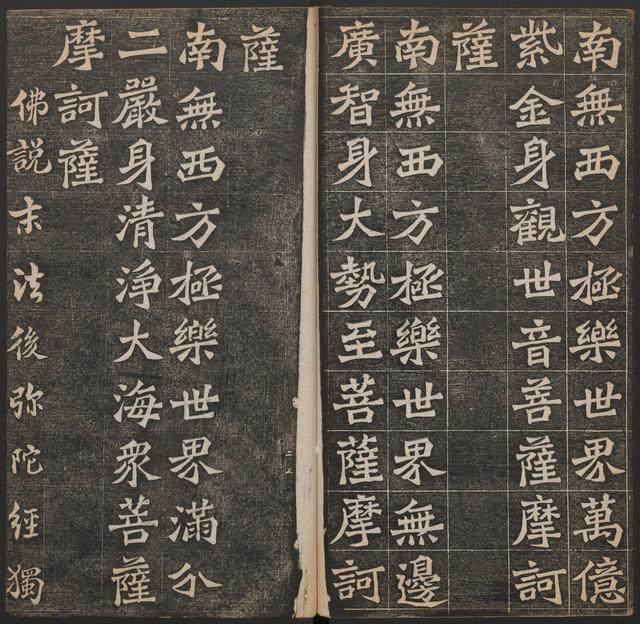 南無西方極樂世界萬億
紫金身觀世音菩薩摩訶
薩
南無西方極樂世界無邊
廣智身大勢至菩薩摩訶
薩
南無西方極樂世界滿分
二嚴身清淨大海衆菩薩
摩訶薩
佛説末法後弥陀經獨